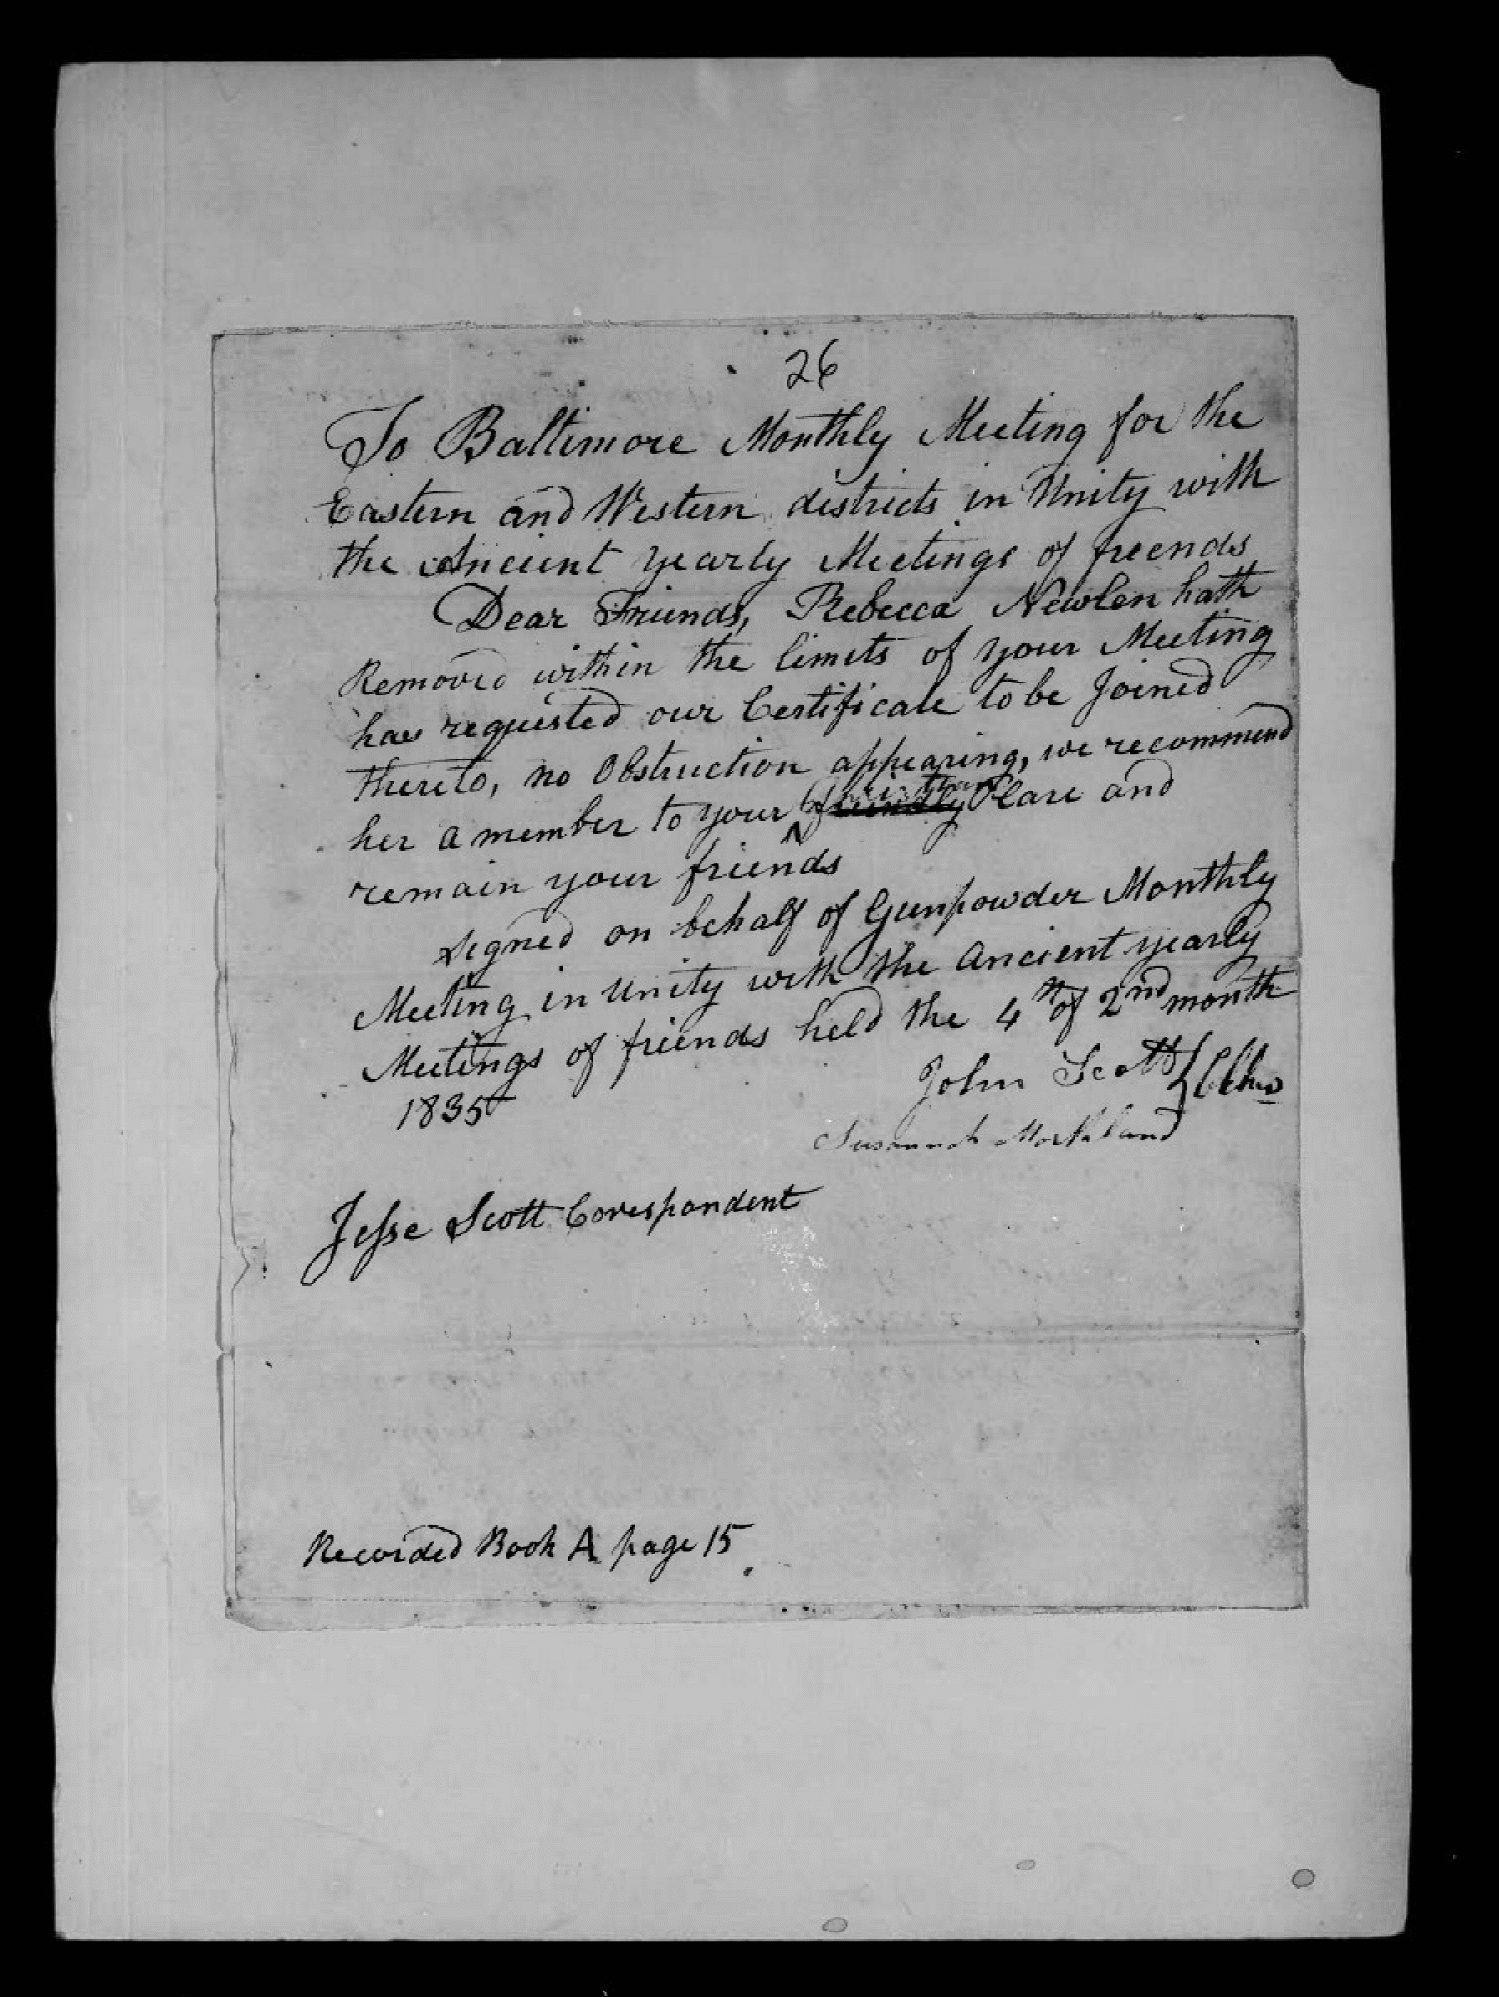 26
To Baltimore Monthly Meeting for the
Eastern and Western districts in Unity with
the Ancient yearly Meetings of freends
Dear Friends, Rebecca Newlen hath
Removed within the limits of your Meeting
has requested our Certificate to be Joined
thereto, no Obstruction appearing, we recommend
her a member to your Christian friendly Care and
remain your friends
signed on behalf of Gunpowder Monthly
Meeting in Unity with the Ancient yearly
Meetings of friends held the 4th of 2nd month
1835
John Scott } Clks
Susannah Morthland
Jesse Scott Corespondent
Recorded Book A page 15